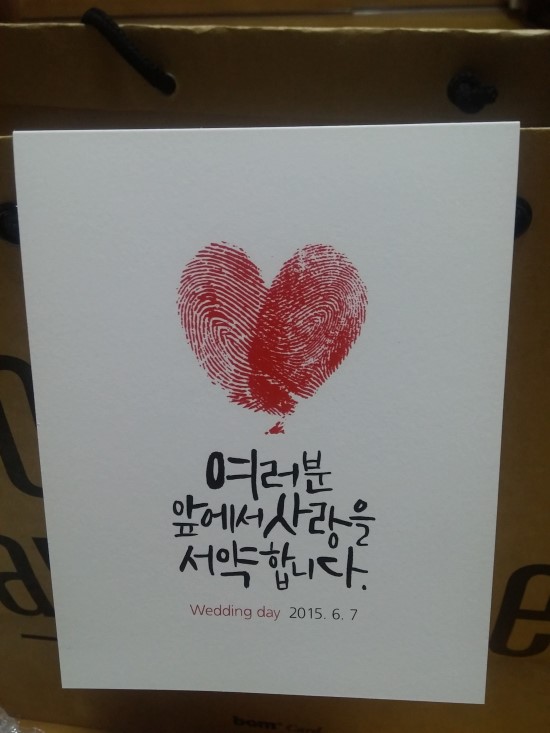 여러분
앞에서 사랑을
서약합니다.
Wedding day 2015. 6. 7